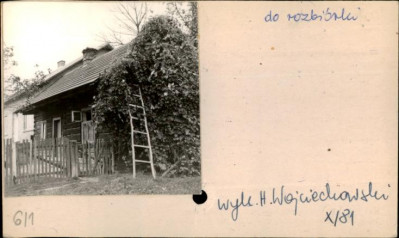 do rozbiórki
wyk. H. Wojciechowski
X/81
6/1